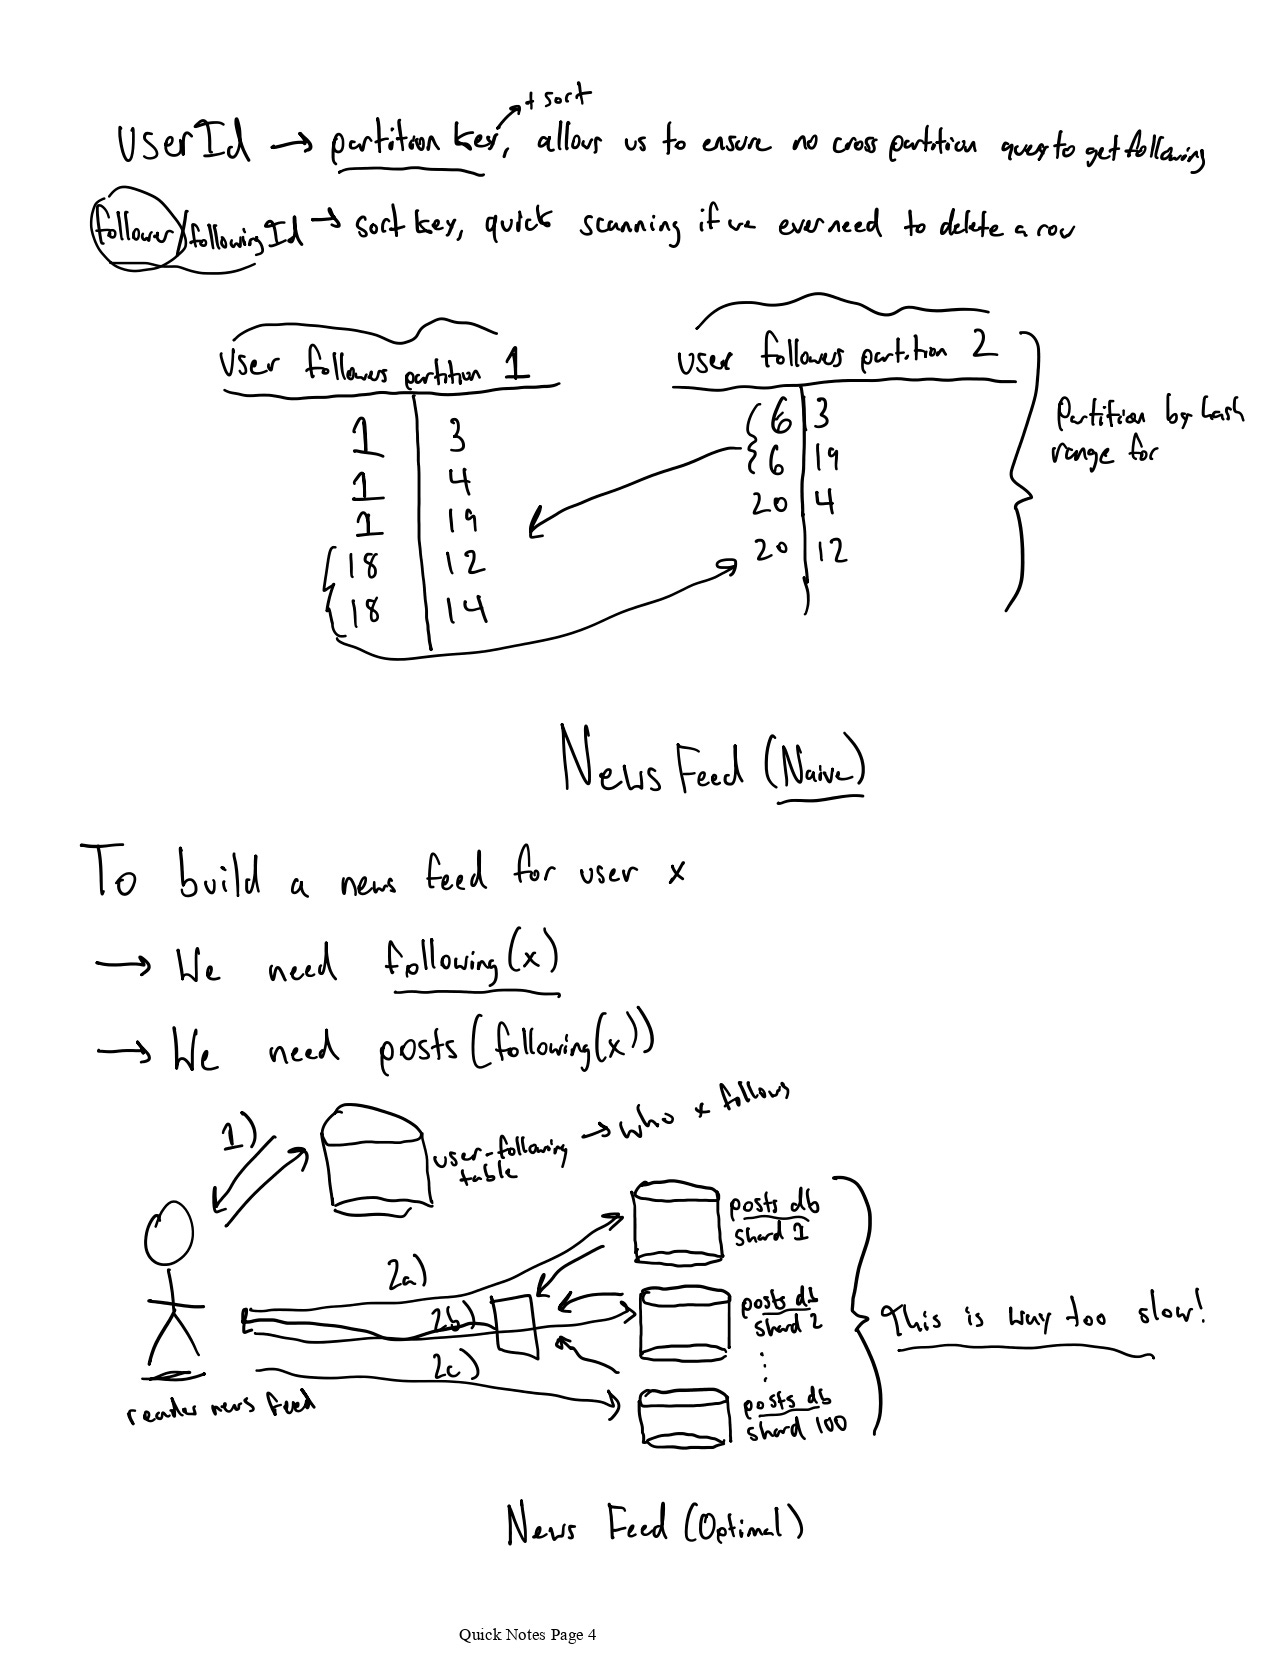 + sort
UserId → partition key, allows us to ensure no cross partition query to get following
follower/followingId → sort key, quick scanning if we ever need to delete a row
User followers partition 1
1 3
1 4
1 19
18 12
18 14
user followers partition 2
6 3
6 19
20 4
20 12
Partition by hash
range for
News Feed (Naive)
To build a news feed for user x
→ We need following(x)
→ We need posts(following(x))
1)
user-following → who x follows
table
posts db
shard 1
2a)
2b)
posts db
shard 2
2c)
posts db
shard 100
This is way too slow!
reader news feed
News Feed (Optimal)
Quick Notes Page 4